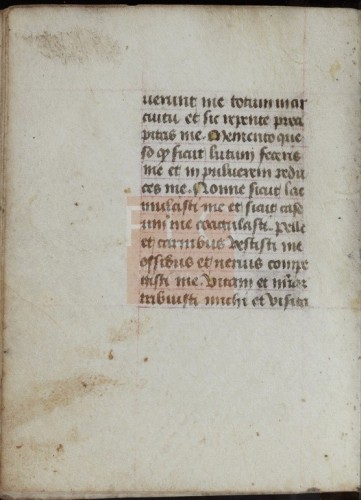 uerunt me totum in cir
cuitu et sic repente preci
pitas me. Memento que
so qp sicut lutum feceris
me et in puluerem redu
ces me. Nonne sicut lac
mulcisti me et sicut case
um me coagulasti. Pelle
et carnibus vestisti me
ossibus et neruis compe
gisti me. Vitam et miam
tribuisti michi et visita